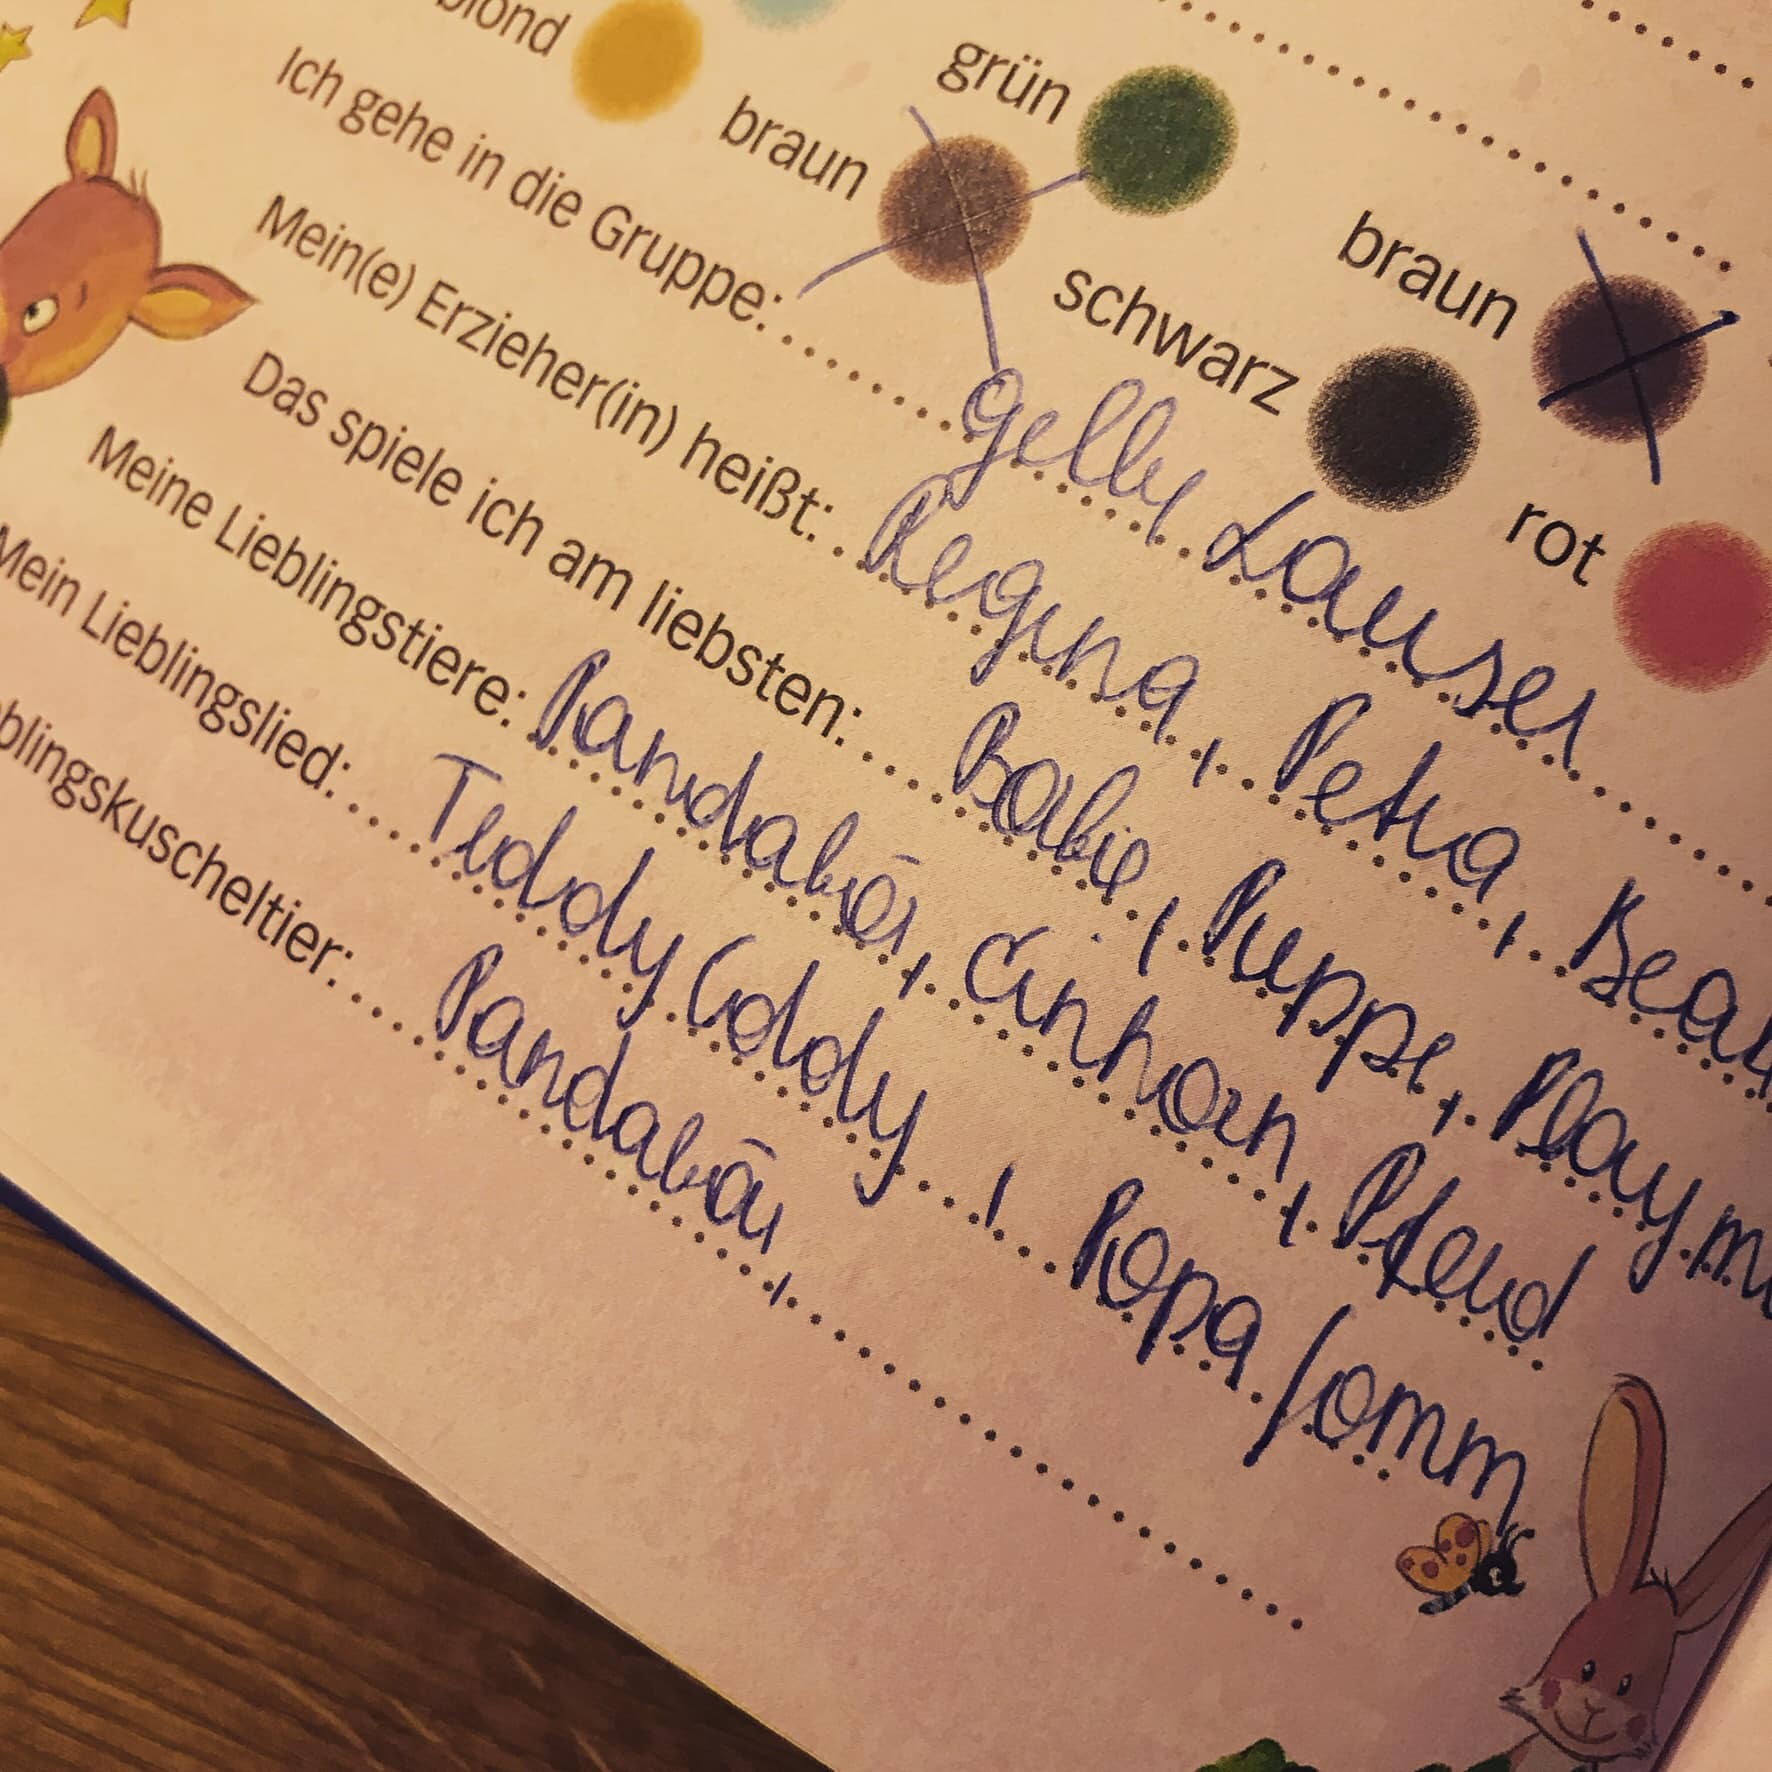 blond
grün
braun
braun
schwarz
rot
Ich gehe in die Gruppe: gelly Lauser
Mein(e) Erzieher(in) heißt: Regina, Petra, Bea
Das spiele ich am liebsten: Babie, Puppe, Playm
Meine Lieblingstiere: Pandabär, Einhorn, Pferd
Mein Lieblingslied: Teddy Eddy, Popa/omm
blingskuscheltier: Pandabär,